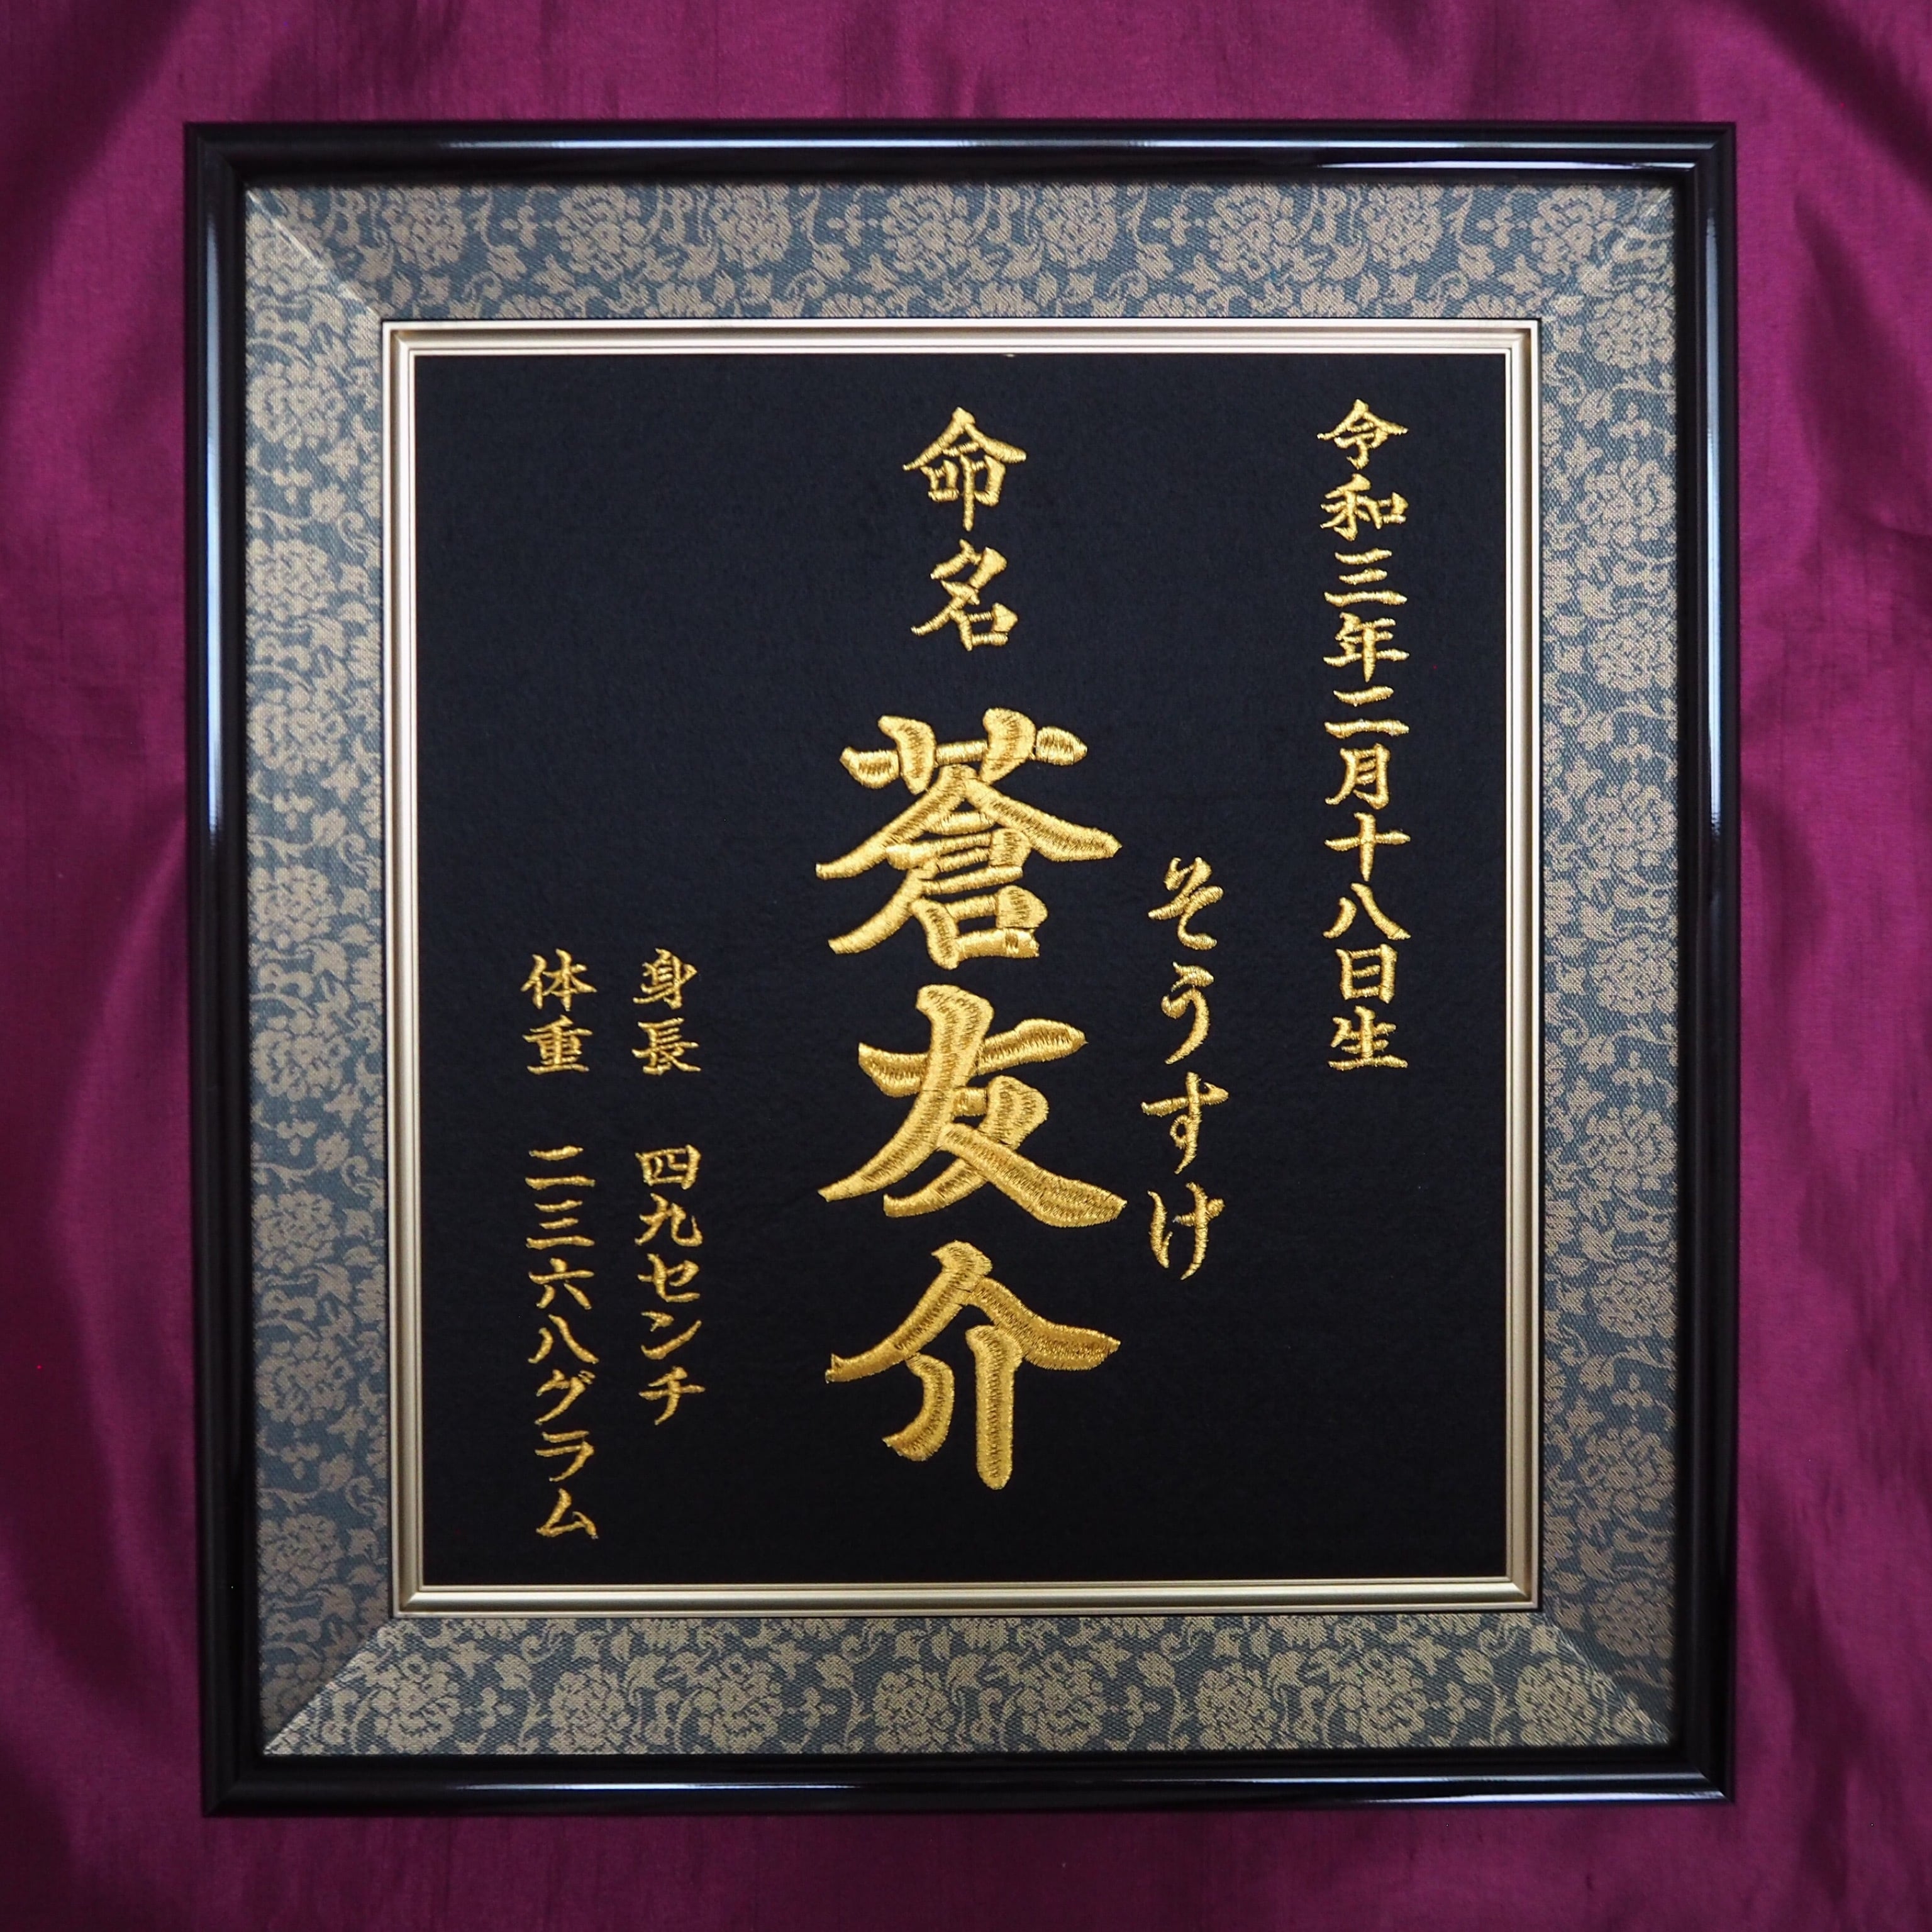 令和三年二月十八日生
そうすけ
命名 蒼友介
身長 四九センチ
体重 二三六八グラム